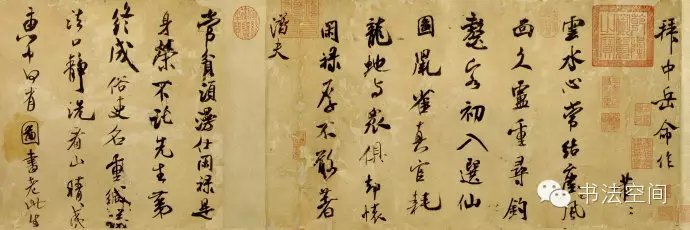 拜中岳命作
芾二
雲水心常結塵風
面久盧重尋釣
鰲客初入選仙
圖鼠雀真官耗
龍蛇與衆俱却懷
閑祿厚不敢著
潛夫
常貧須漫仕閑祿是
身榮不託先生第
終成俗吏名重緘議
法口靜洗看山晴夷
惠中何有圖書老此生
书法空间